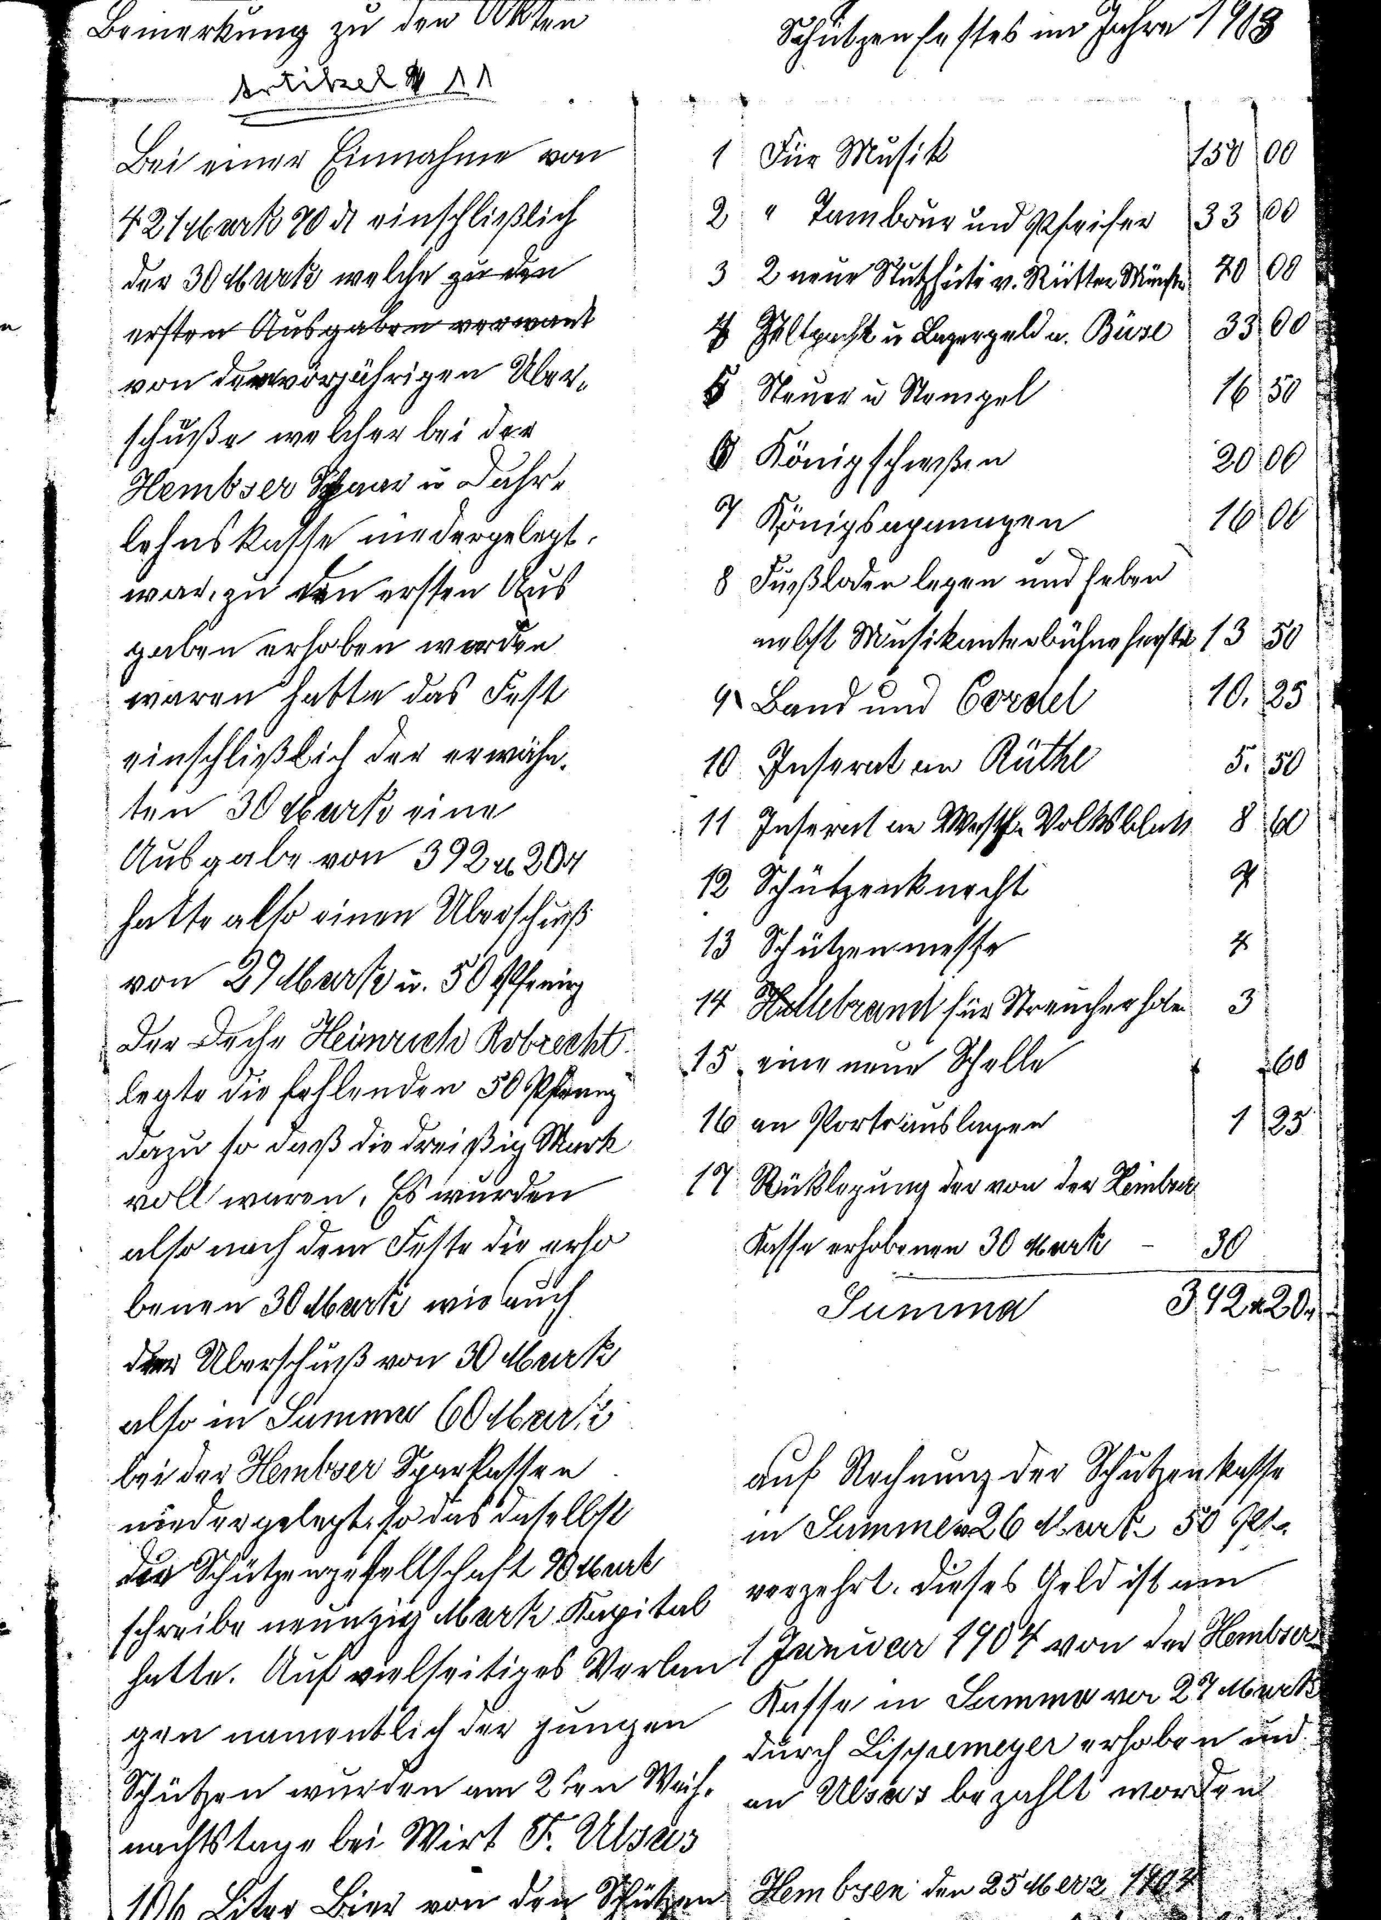 Bemerkung zu den Akten
Artikel 11
Bei einer Einnahme von
421 Mark 70 d einschließlich
der 30 Mark welche zu den
ersten Ausgaben verwant
von der vorjährigen Über-
schuße welcher bei der
Hembser Spaar u Dahr-
lehnskasse niedergelegt
war, zu den ersten Aus
gaben erhoben worden
waren hatte das Fest
einschließlich der erwähn-
ten 30 Mark eine
Ausgabe von 392 M 20 d
hatte also einen Überschuß
von 29 Mark u. 50 Pfenig
Der Deche Heinrich Robrecht
legte die fehlenden 50 Pfennig
dazu so daß die dreißig Mark
voll waren. Es wurden
also nach dem Feste die erho
benen 30 Mark wie auch
der Überschuß von 30 Mark
also in Summa 60 Mark
bei der Hembser Sparkassen
niedergelegt, so das daselbst
die Schützengesellschaft 90 Mark
schreibe neunzig Mark Kapital
hatte. Auf vielseitiges Verlan
gen namentlich der jungen
Schützen wurden am 2ten Weih-
nachtstage bei Wirt F. Ulsas
106 Liter Bier von den Schützen
Schützenfestes im Jahre 1903
1 Für Musik 150 00
2 " Tambour und Pfeifer 33 00
3 2 neue Stutzhüte v. Rütter Münster 40 00
4 Zeltpacht u Lagergeld a. Büse 33 00
5 Steuer u Stempel 16 50
6 Königschießen 20 00
7 Königsapanagen 16 00
8 Fußboden legen und heben
nebst Musikantenbühne 13 50
9 Band und Cordel 10. 25
10 Inserat an Rüthe 5. 50
11 Inserat an Westf. Volksblatt 8 60
12 Schützenknecht 7
13 Schützenmesse 4
14 Hillebrand für Sträucher holen 3
15 eine neue Schelle 60
16 an Portoauslagen 1 25
17 Rücklegung der von der Hembser
Kasse erhobenen 30 Mark - 30
Summa 392 M 20 d
auf Rechnung der Schützenkasse
in Summa 26 Mark 50 Pf.
verzehrt. Dieses Geld ist am
1 Januar 1904 von der Hembser
Kasse in Summa von 27 Mark
durch Lippemeyer erhoben und
an Ulsas bezahlt worden
Hembsen den 25 Merz 1904